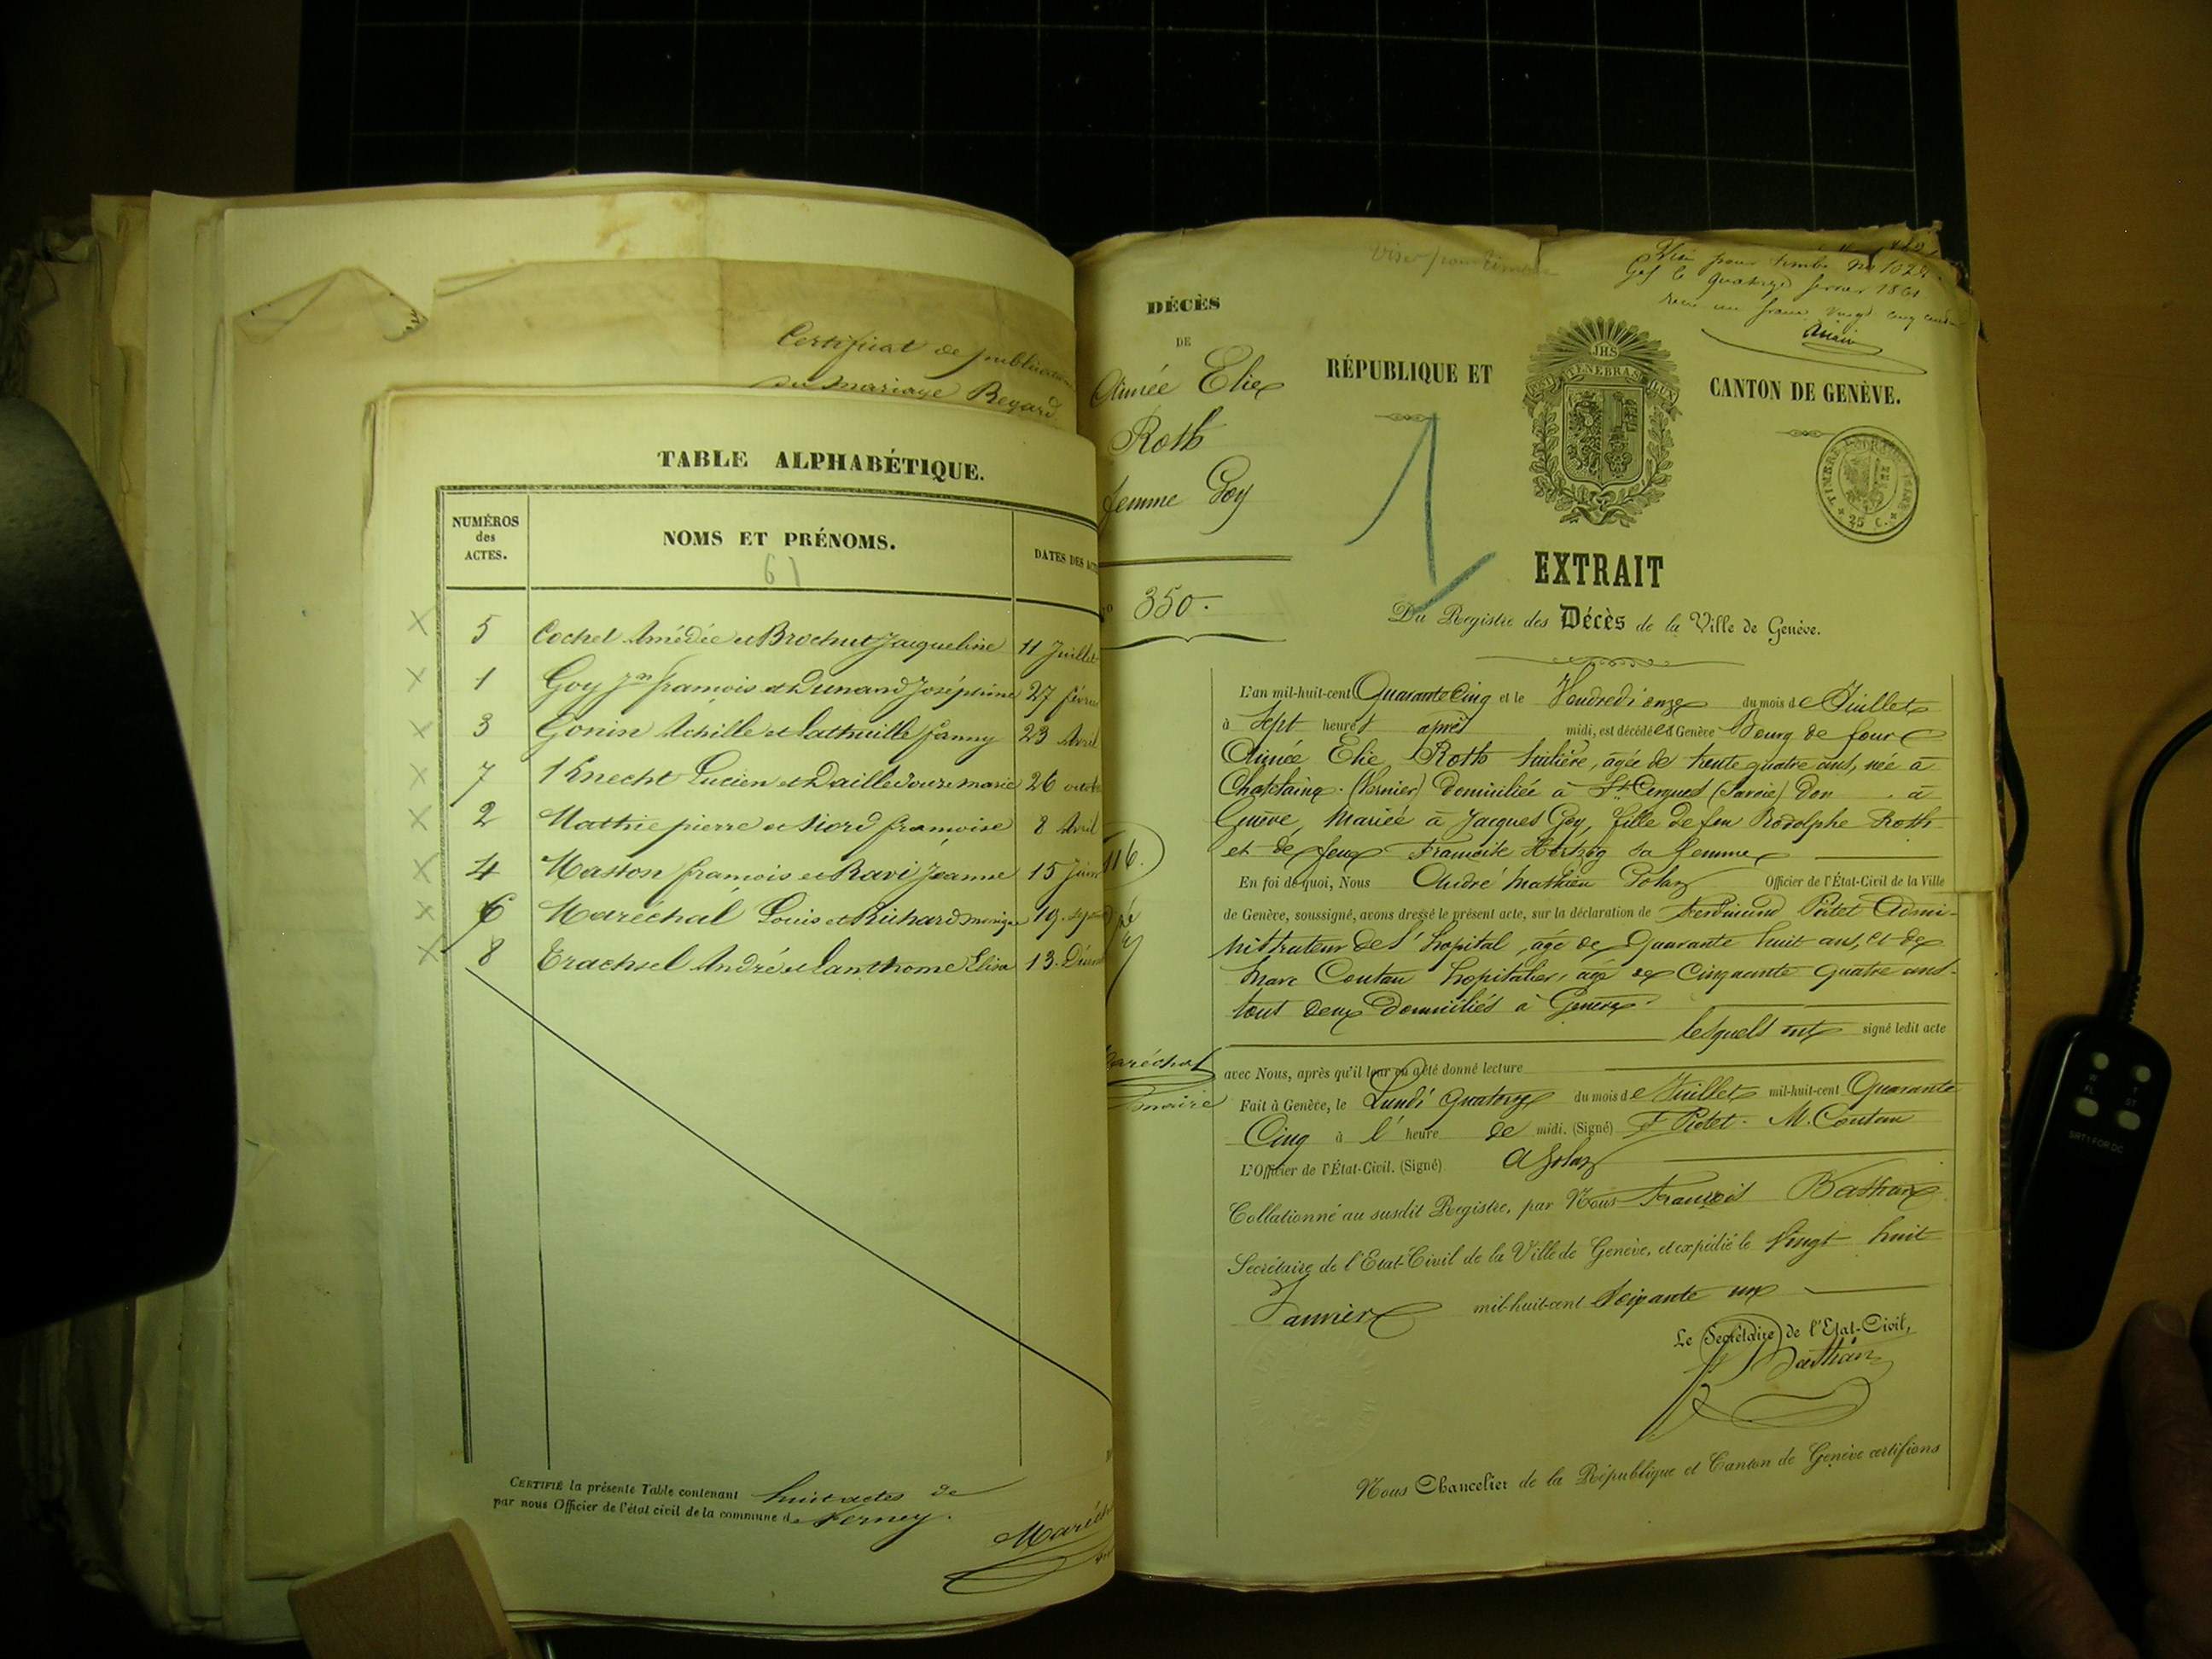 Certificat de publication
du mariage Regard
TABLE ALPHABÉTIQUE.
NUMÉROS des ACTES.
NOMS ET PRÉNOMS.
DATES DES
61
5 Cochet Amédée et Brochut Jacqueline 11 Juillet
1 Goy Jn françois et Dunand Joséphine 27 févri
3 Gonin Achille et Lathuille fanny 23 Avril
7 Knecht Lucien et marie 26 octob
2 Mathie pierre et françoise 8 Avril
4 Maston françois et Ravi Jeanne 15 Juin
6 Maréchal Louis et Richard 19
8 Trachsel André et Lanthome Elisa 13
CERTIFIÉ la présente Table contenant huit actes de
par nous Officier de l'état civil de la commune de Ferney.
116.
Maréchal
maire
Viser pour timbre
Visé pour timbre no
Gex le quatorze 1861
reçu un franc vingt cinq
DÉCÈS
DE
Aimée Elie
Roth
femme Goy
350.
RÉPUBLIQUE ET CANTON DE GENÈVE.
JHS
POST TENEBRAS LUX
25 C.
1
EXTRAIT
Du Registre des Décès de la Ville de Genève.
L'an mil-huit-cent Quarante Cinq et le Vendredi onze du mois de Juillet
à Sept heures après midi, est décédée à Genève Bourg de four
Aimée Elie Roth agée de trente quatre ans, née à
Chatelaine (Vernier) domiciliée à St. Cergues (Savoie) à
Genève, Mariée à Jacques Goy, fille de feu Rodolphe Roth
et de feue Françoise Hertzog sa femme
En foi de quoi, Nous André Mathieu Golaz Officier de l'État-Civil de la Ville
de Genève, soussigné, avons dressé le présent acte, sur la déclaration de Ferdinand Pictet Admi-
nistrateur de l'hopital, agé de Quarante huit ans, et de
Marc Coutau hopitalier, agé de Cinquante quatre ans
tous deux Domiciliés à Genève
lesquels ont signé ledit acte
avec Nous, après qu'il leur en a été donné lecture
Fait à Genève, le Lundi Quatorze du mois de Juillet mil-huit-cent Quarante
Cinq à l' heure de midi. (Signé) F Pictet - M. Coutau
L'Officier de l'État-Civil. (Signé) A Golaz
Collationné au susdit Registre, par Nous François Bastian
Secrétaire de l'Etat-Civil de la Ville de Genève, et expédié le Vingt huit
Janvier mil-huit-cent Soixante un
Le Secrétaire de l'Etat-Civil,
Bastian
Nous Chancelier de la République et Canton de Genève certifions
SRT1 FOR DC